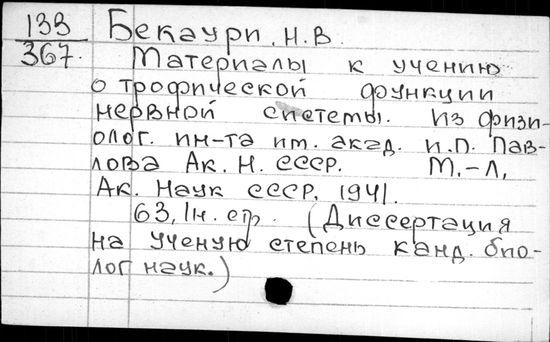 133 Бекаури, Н.В.
367. Материалы к учению
о трофической функции
нервной системы. Из физи-
олог. ин-та им. акад. И.П. Пав-
лова Ак. Н. СССР. М.-Л,
Ак. Наук СССР, 1941.
63, 1н. стр. (Диссертация
на ученую степень канд. био-
лог наук.)